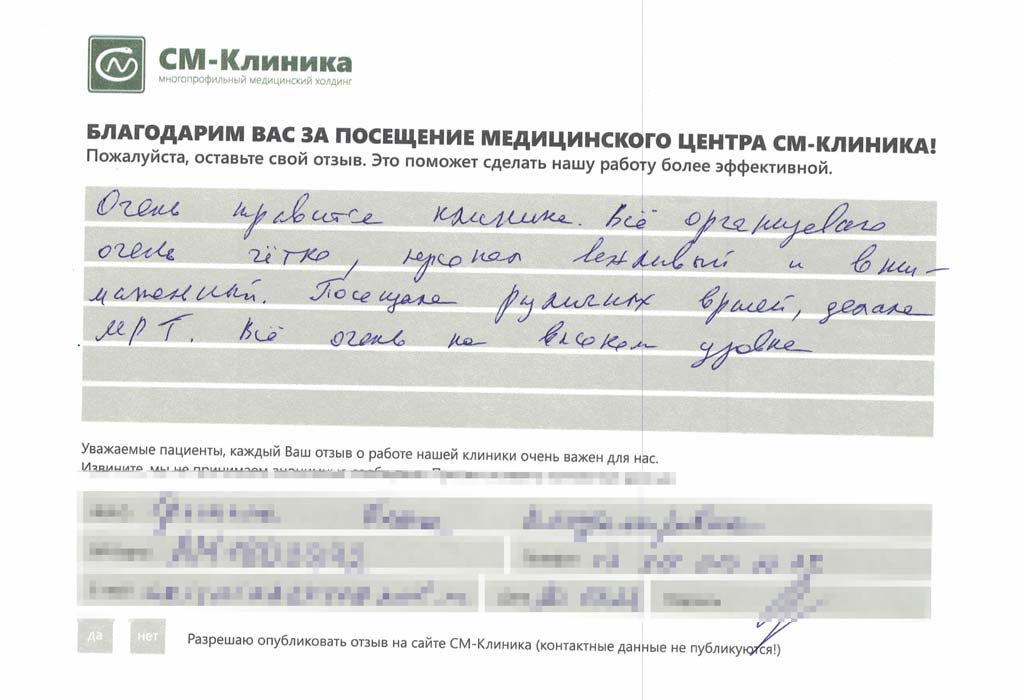 СМ-Клиника
многопрофильный медицинский холдинг
БЛАГОДАРИМ ВАС ЗА ПОСЕЩЕНИЕ МЕДИЦИНСКОГО ЦЕНТРА СМ-КЛИНИКА!
Пожалуйста, оставьте свой отзыв. Это поможет сделать нашу работу более эффективной.
Очень нравится клиника. Всё организовано
очень чётко, персонал вежливый и вни-
мательный. Посещала различных врачей, делала
МРТ. Всё очень на высоком уровне
Уважаемые пациенты, каждый Ваш отзыв о работе нашей клиники очень важен для нас.
Извините, мы не принимаем
да нет Разрешаю опубликовать отзыв на сайте СМ-Клиника (контактные данные не публикуются!)